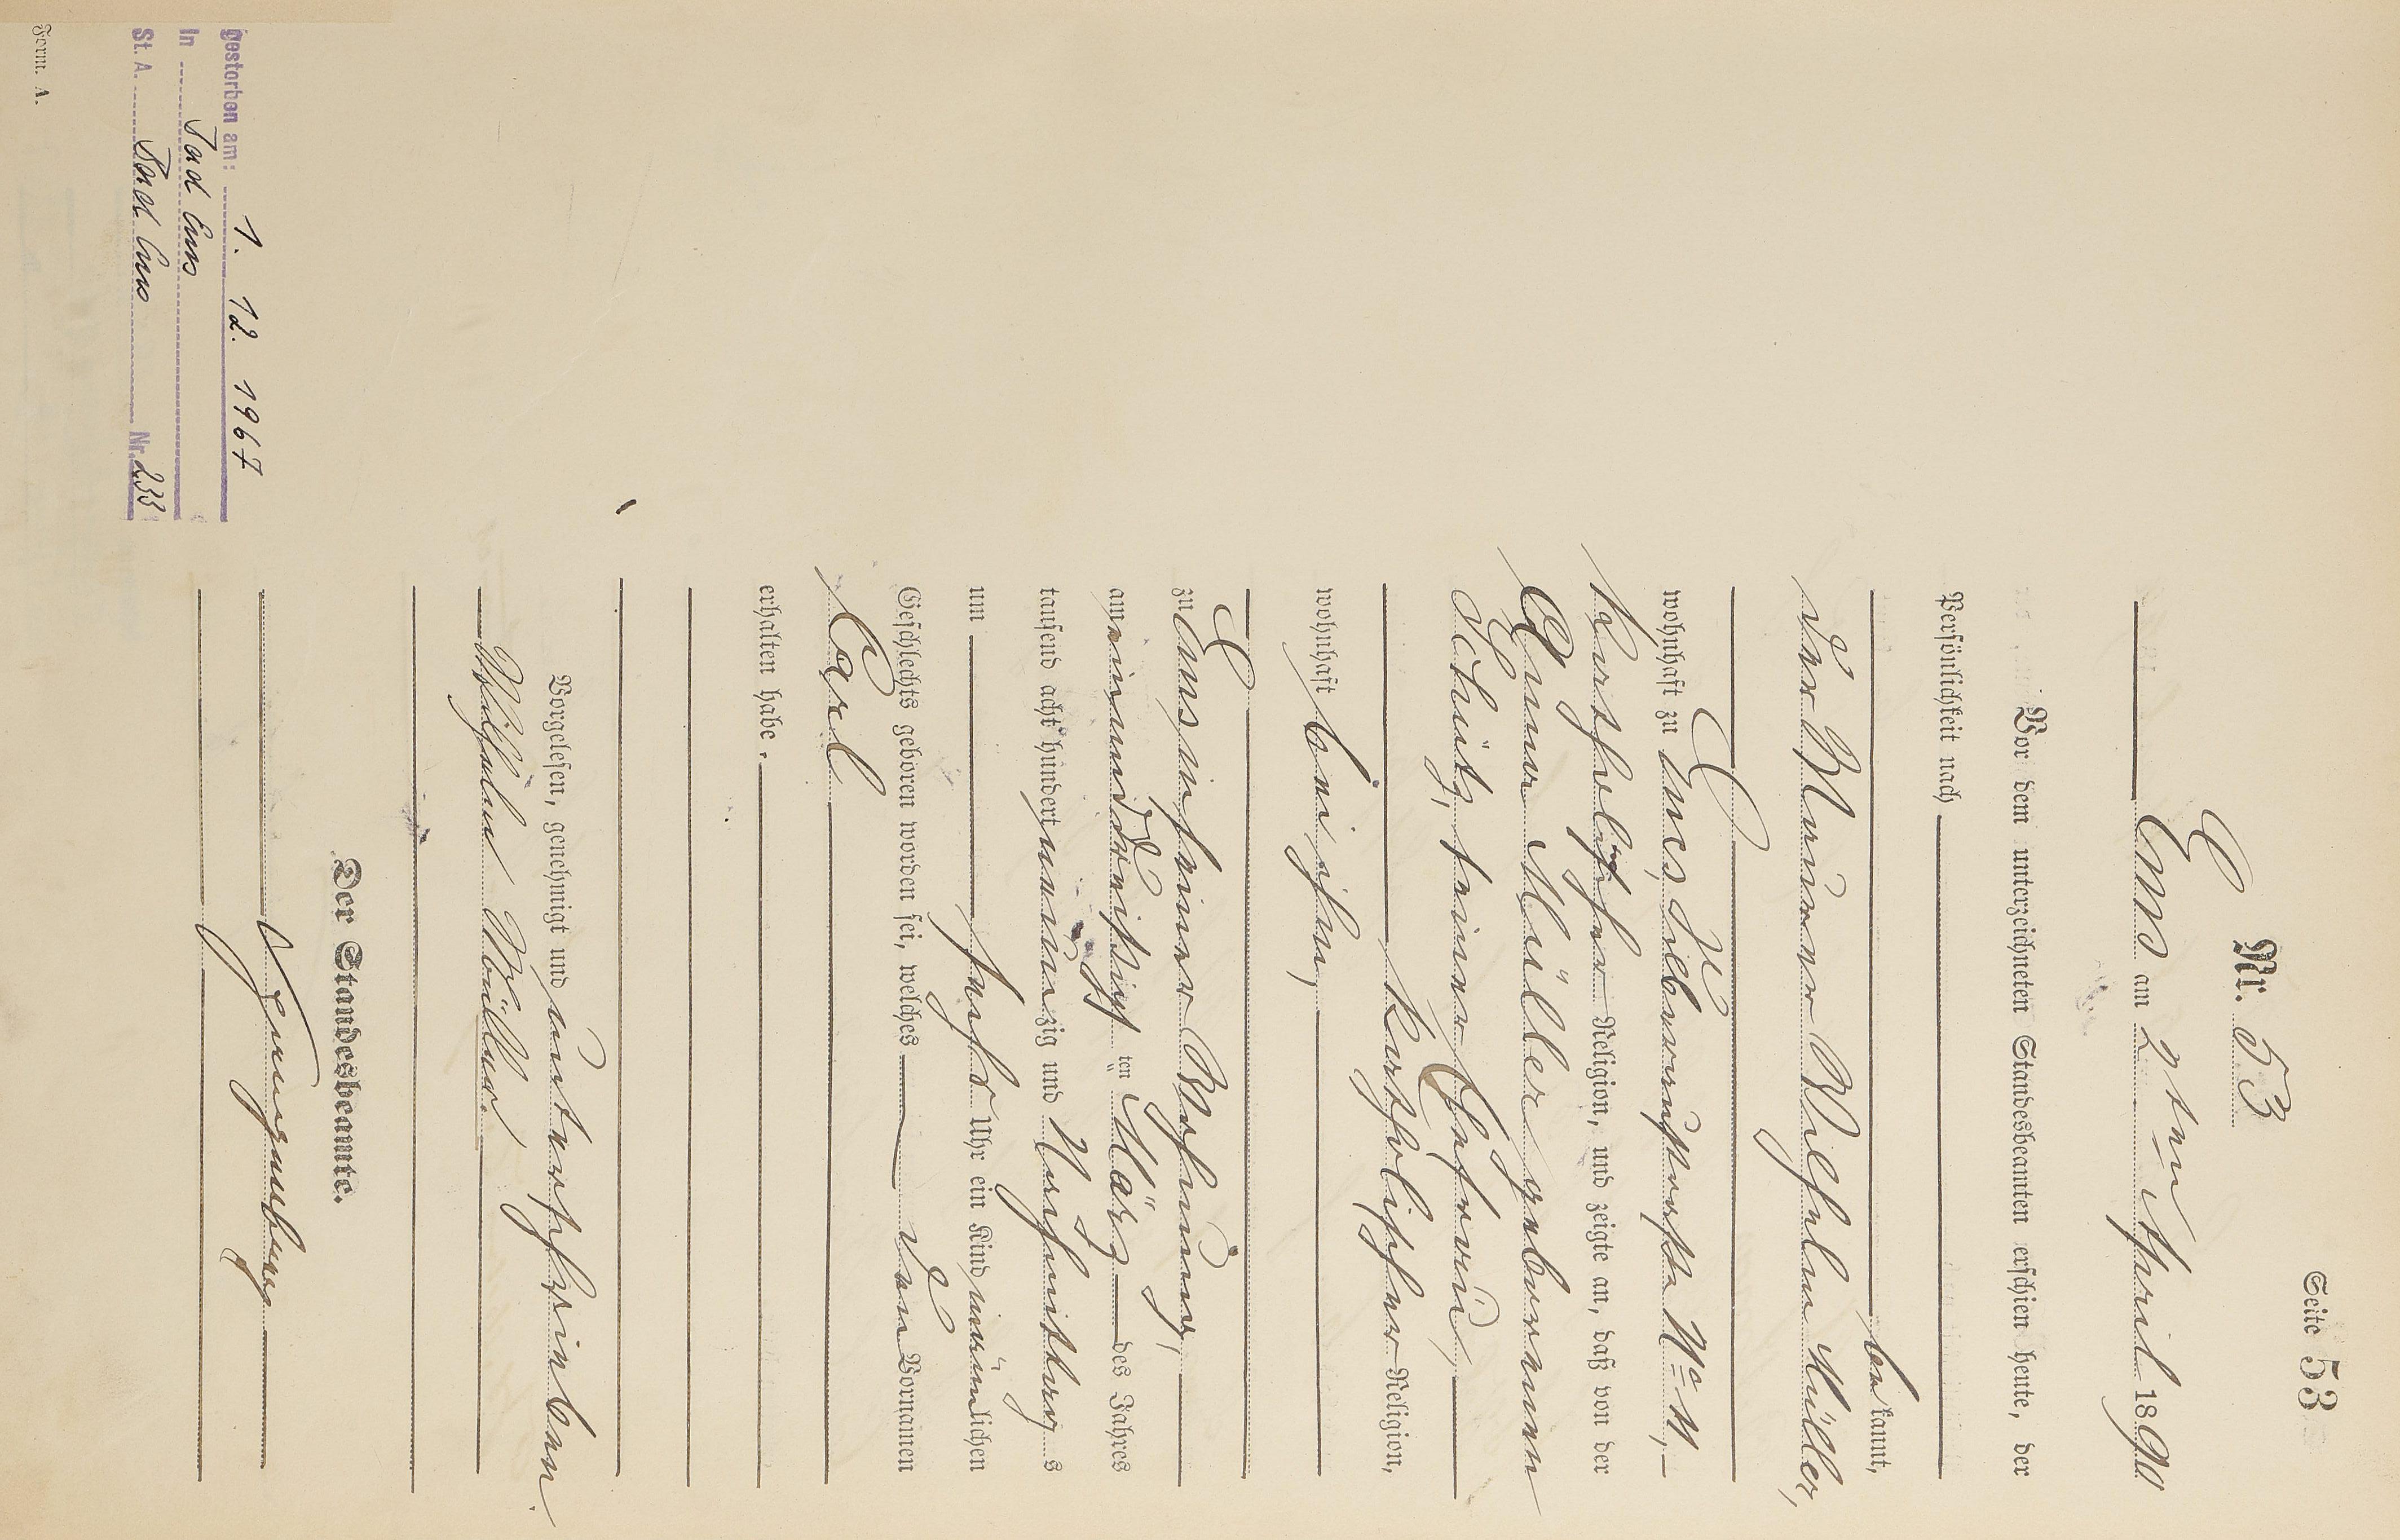 Seite 53
Nr. 53
Ems am 2ten April 1890
Vor dem unterzeichneten Standesbeamten erschien heute, der
Persönlichkeit nach
be kannt,
der Maurer Wilhelm Müller,
wohnhaft zu Ems, Silberaustraße No 11,
katholischer Religion, und zeigte an, daß von der
Anna Müller geborenen
Schütz, seiner Ehefrau,
katholischer Religion,
wohnhaft bei ihm,
zu Ems in seiner Wohnung,
am einunddreißigsten März des Jahres
tausend acht hundert neunzig und Nachmittags
um sechs Uhr ein Kind männlichen
Geschlechts geboren worden sei, welches den Vornamen
Carl
erhalten habe.
Vorgelesen, genehmigt und unterschrieben.
Wilhelm Müller.
Der Standesbeamte.
gestorben am: 1. 12. 1967
in Bad Ems
St. A. Bad Ems Nr. 233
Form. A.